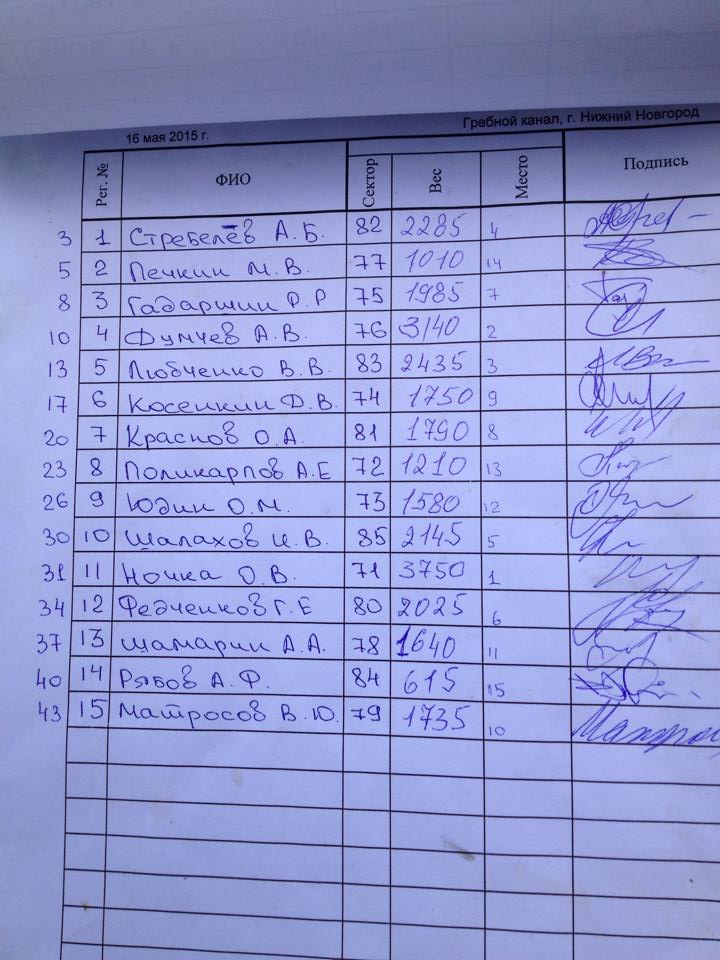 16 мая 2015 г. Гребной канал, г. Нижний Новгород
Рег. № ФИО Сектор Вес Место Подпись
3 1 Стребелёв А.Б. 82 2285 4
5 2 Печкин М.В. 77 1010 14
8 3 Гадаршин Р.Р 75 1985 7
10 4 Фумчев А.В. 76 3140 2
13 5 Любченко В.В. 83 2435 3
17 6 Косенкин Д.В. 74 1750 9
20 7 Краснов О.А. 81 1790 8
23 8 Поликарпов А.Е 72 1210 13
26 9 Юдин О.М. 73 1580 12
30 10 Шалахов И.В. 85 2145 5
31 11 Ночка О.В. 71 3750 1
34 12 Федченков Г.Е 80 2025 6
37 13 Шамарин А.А. 78 1640 11
40 14 Рябов А.Ф. 84 615 15
43 15 Матросов В.Ю. 79 1735 10